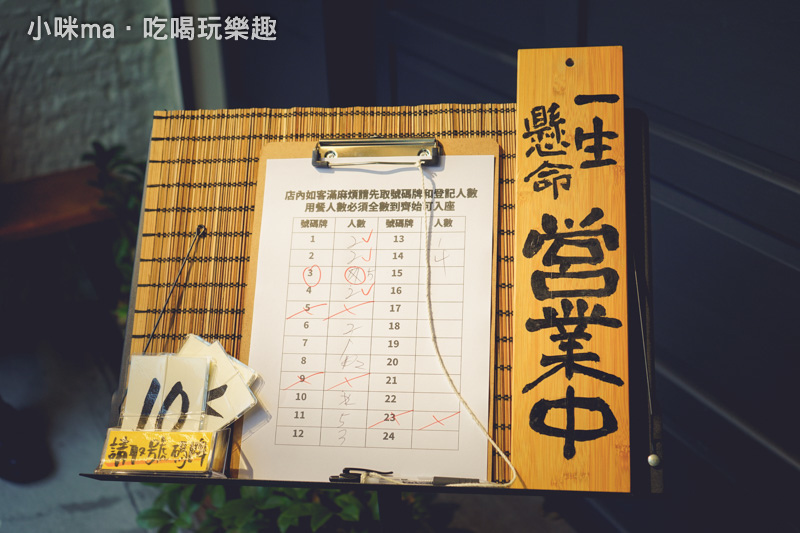 小咪ma · 吃喝玩樂趣
一生
懸命
営業中
店內如客滿麻煩請先取號碼牌和登記人數
用餐人數必須全數到齊始可入座
號碼牌 人數 號碼牌 人數
1 2 13 1
2 3 14 4
3 5 15
4 2 16
5 17
6 2 18
7 1 19
8 2 20
9 21
10 22
11 5 23
12 3 24
10
請取號碼牌